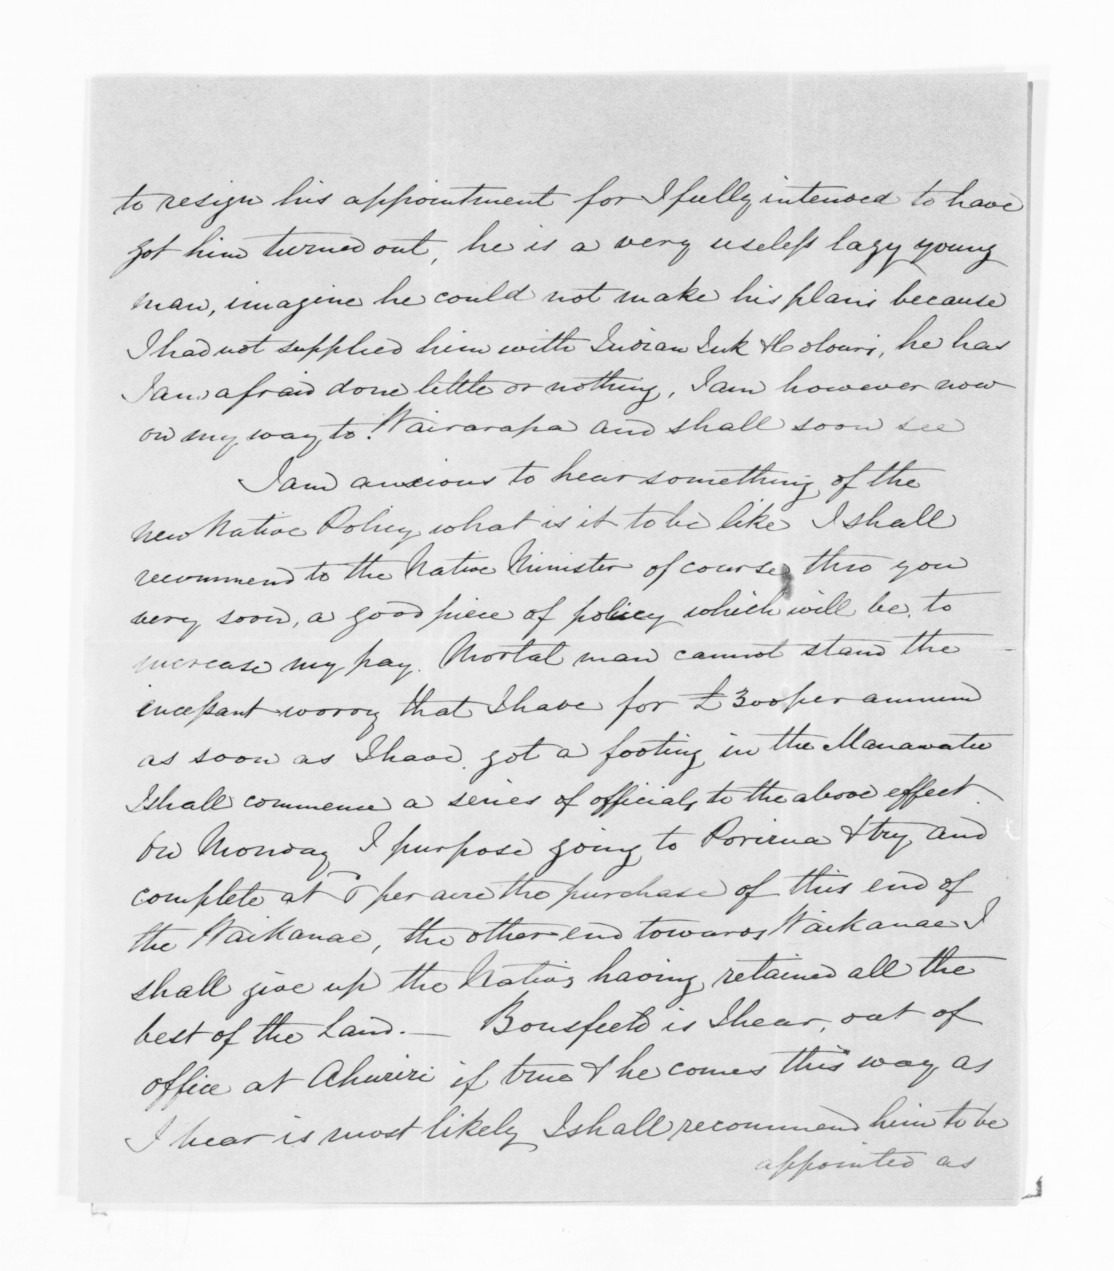 to resign his appointment for I fully intended to have
got him turned out, he is a very useless lazy young
man, imagine he could not make his plans because
I had not supplied him with Indian Ink & Colours, he has
I am afraid done little or nothing, I am however now
on my way to Wairarapa and shall soon see
I am anxious to hear something of the
new Native Policy what is it to be like I shall
recommend to the Native Minister of course thro you
very soon, a good piece of policy which will be to
increase my pay. Mortal man cannot stand the
incessant worry that I have for £300 per annum
as soon as I have got a footing in the Manawatu
I shall commence a series of officials to the above effect
On Monday I purpose going to Porirua & try and
complete at per acre the purchase of this end of
the Waikanae, the other end towards Waikanae I
shall give up the Natives having retained all the
best of the Land. — Bousfield is I hear, out of
office at Ahuriri if true & he comes this way as
I hear is most likely I shall recommend him to be
appointed as